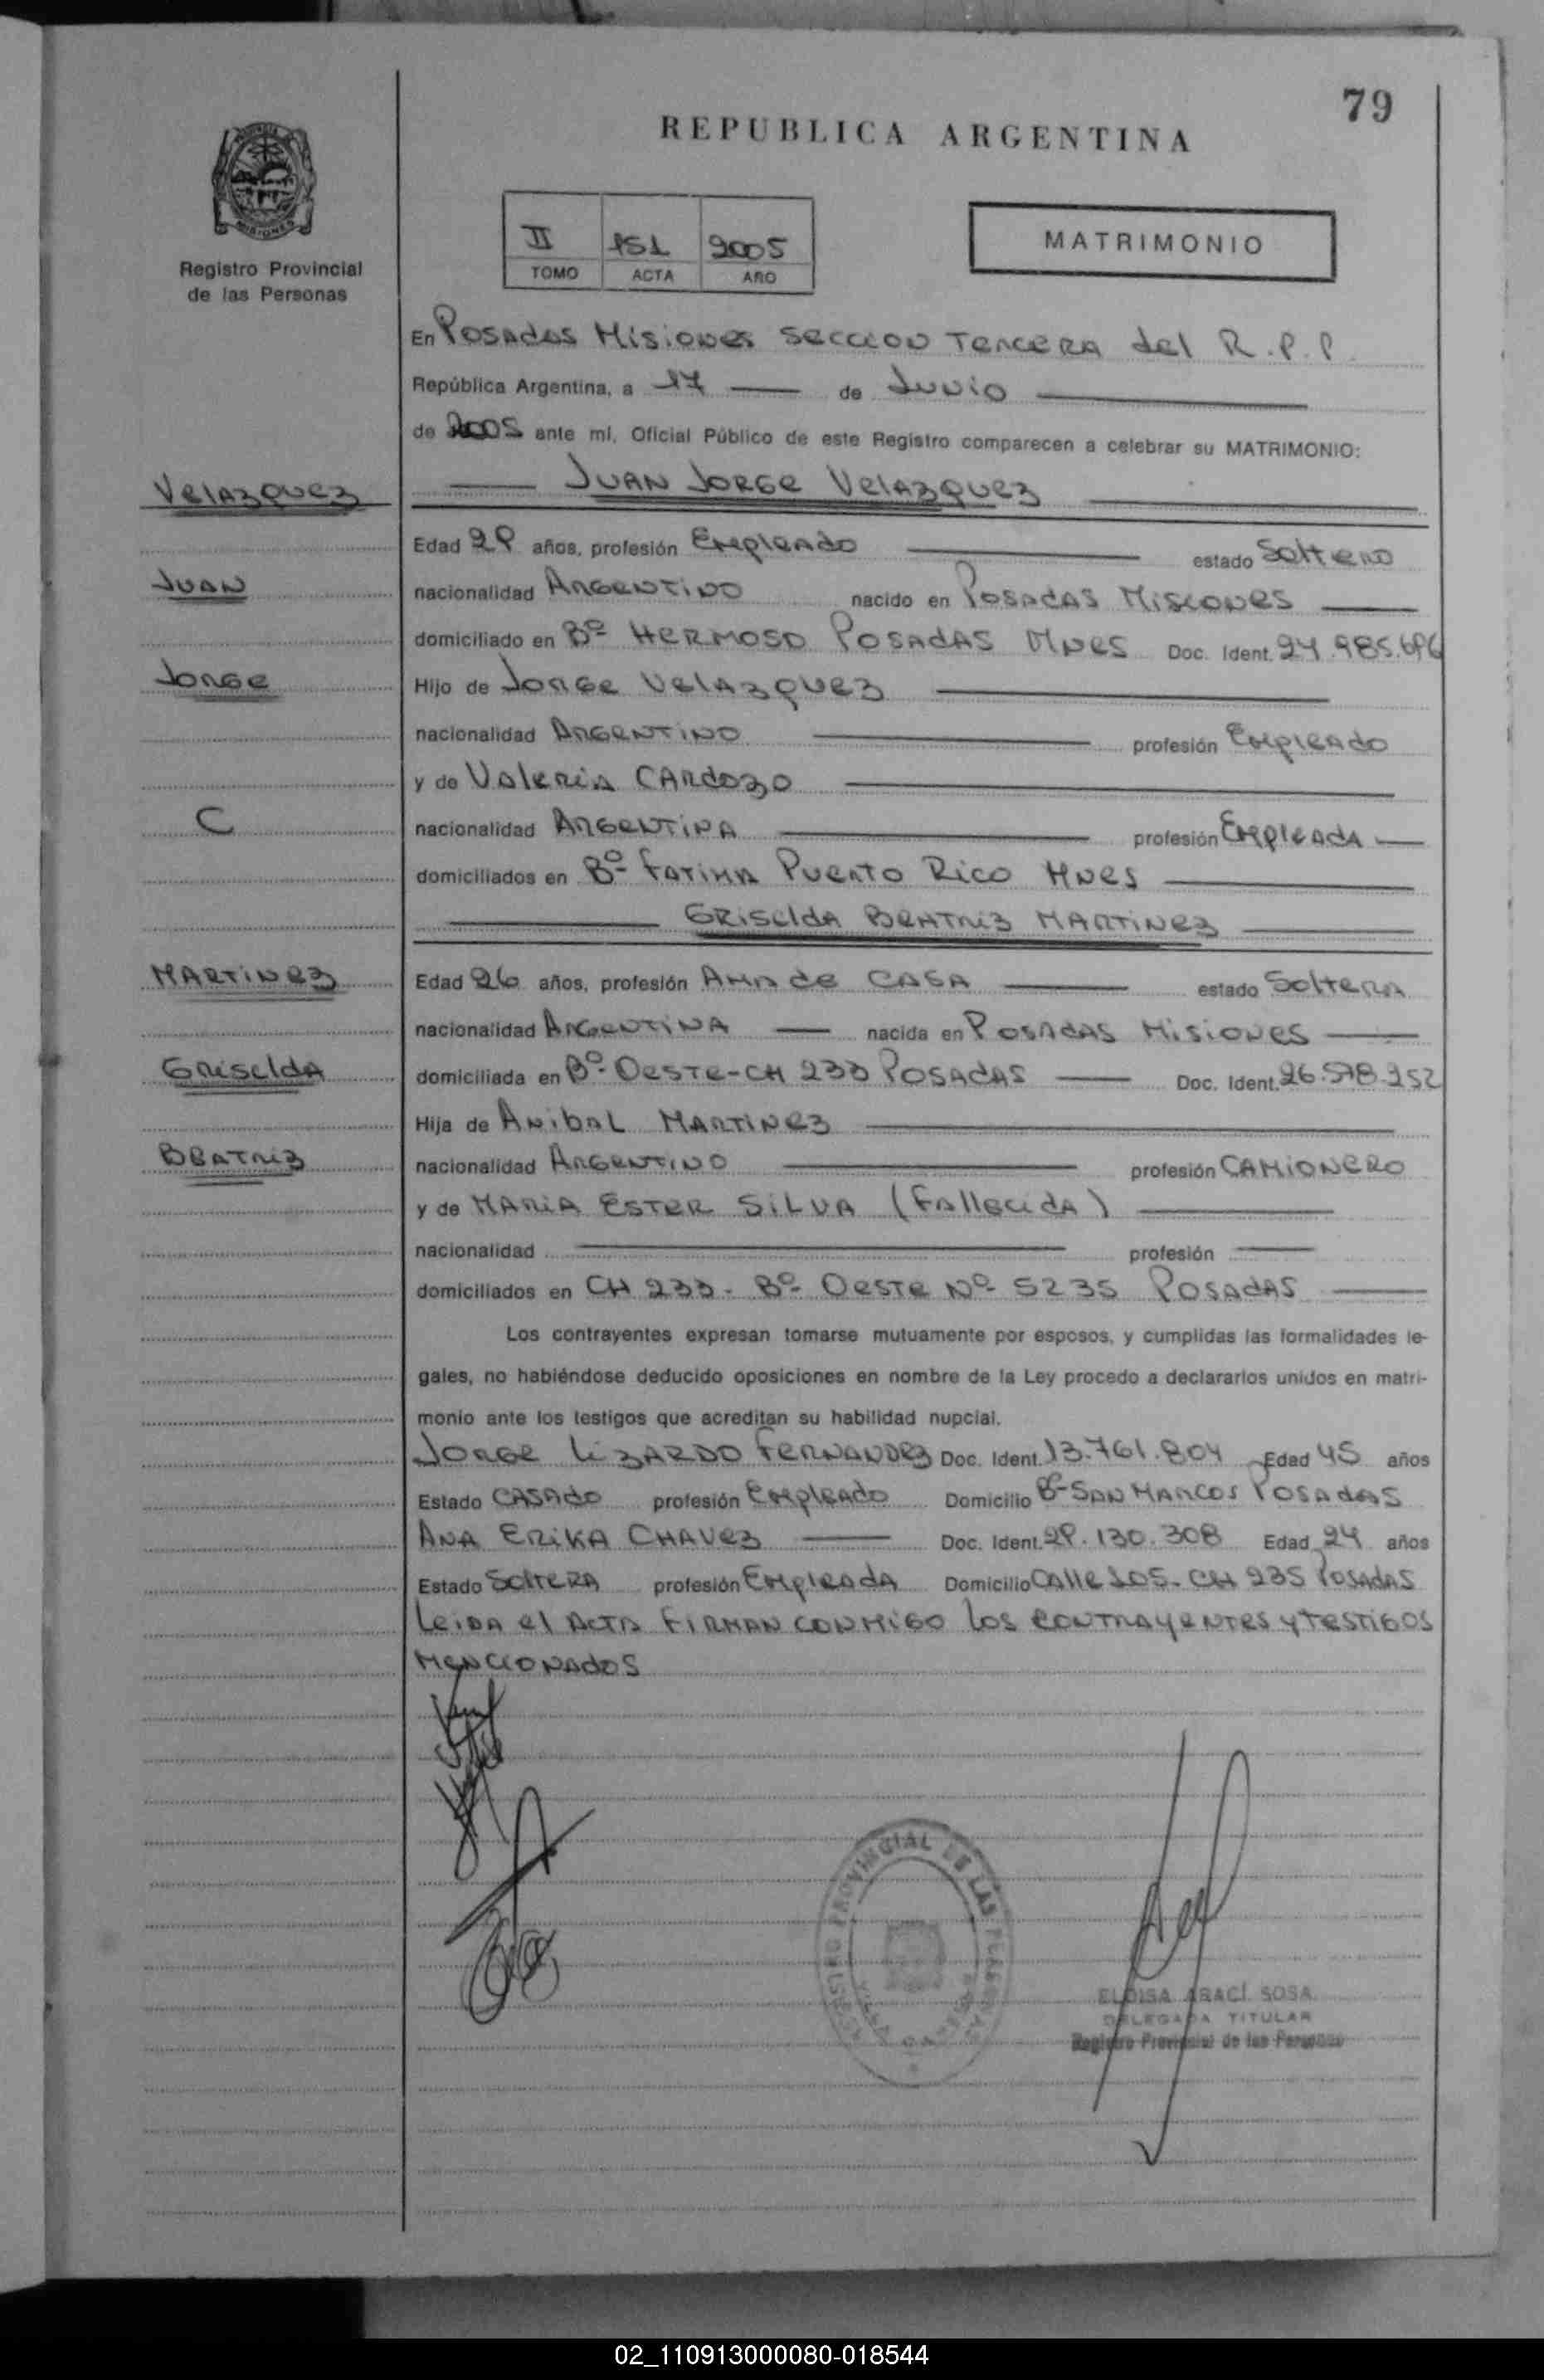 79
REPUBLICA ARGENTINA
Registro Provincial
de las Personas
II 151 2005
TOMO ACTA AÑO
MATRIMONIO
En Posadas Misiones Seccion Tercera del R.P.P.
República Argentina, a 17 de Junio
de 2005 ante mí, Oficial Público de este Registro comparecen a celebrar su MATRIMONIO:
Velazquez
Juan Jorge Velazquez
Edad 29 años, profesión Empleado estado Soltero
Juan
nacionalidad Argentino nacido en Posadas Misiones
domiciliado en Bº Hermoso Posadas Mnes Doc. Ident. 24.985.696
Jorge
Hijo de Jorge Velazquez
nacionalidad Argentino profesión Empleado
y de Valeria Cardozo
C
nacionalidad Argentina profesión Empleada
domiciliados en Bº Fatima Puerto Rico Mnes
Griselda Beatriz Martinez
Martinez
Edad 26 años, profesión Ama de Casa estado Soltera
nacionalidad Argentina nacida en Posadas Misiones
Griselda
domiciliada en Bº Oeste-CH 233 Posadas Doc. Ident. 26.578.252
Hija de Anibal Martinez
Beatriz
nacionalidad Argentino profesión Camionero
y de Maria Ester Silva (Fallecida)
nacionalidad profesión
domiciliados en CH 233 - Bº Oeste Nº 5235 Posadas
Los contrayentes expresan tomarse mutuamente por esposos, y cumplidas las formalidades le-
gales, no habiéndose deducido oposiciones en nombre de la Ley procedo a declararlos unidos en matri-
monio ante los testigos que acreditan su habilidad nupcial.
Jorge Lizardo Fernandez Doc. Ident. 13.761.804 Edad 45 años
Estado Casado profesión Empleado Domicilio Bº San Marcos Posadas
Ana Erika Chavez Doc. Ident. 29.130.308 Edad 24 años
Estado Soltera profesión Empleada Domicilio Calle 105 - CH 235 Posadas
Leida el Acta firman conmigo los contrayentes y testigos
mencionados
REGISTRO PROVINCIAL DE LAS PERSONAS
ELOISA ARACÍ SOSA
DELEGADA TITULAR
Registro Provincial de las Personas
02_110913000080-018544